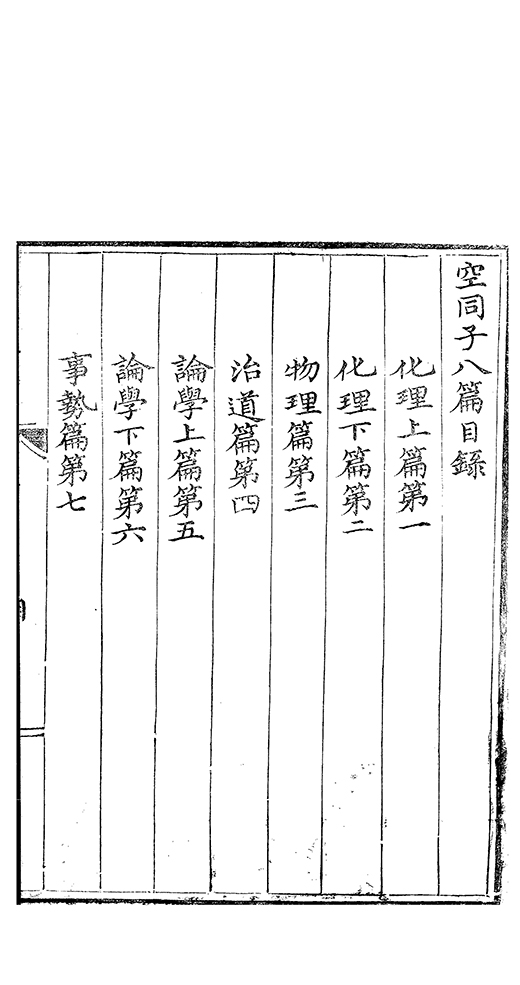 空同子八篇目錄
化理上篇第一
化理下篇第二
物理篇第三
治道篇第四
論學上篇第五
論學下篇第六
事勢篇第七